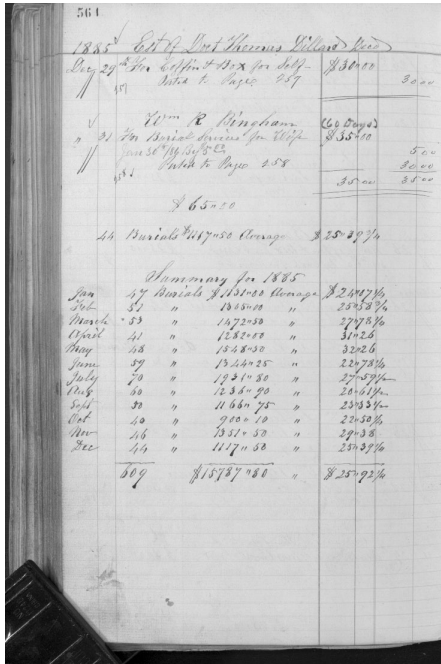 564
1885 Est of Doct Thomas Dillard Decd
Dec 29th For Coffin & Box for Self $30"00
Posted to Page 257 30 00
Wm R Bingham (60 Days)
" 31 For Burial Services for Wife $35"00
Jan 30th /86 By 5 00
Posted to Page 258 30 00
35 00 35 00
$65"00
44 Burials $1117"50 Average $25"39 3/4
Summary for 1885
Jan 47 Burials $1131"00 Average $24"07
Feb 51 " 1305"00 " 25"58
March 53 " 1472"50 " 27"78
April 41 " 1282"00 " 31"26
May 48 " 1548"50 " 32"26
June 59 " 1344"25 " 22"78
July 70 " 1931"80 " 27"59
Aug 60 " 1236"90 " 20"61
Sept 50 " 1166"75 " 23"33
Oct 40 " 900"10 " 22"50
Nov 46 " 1351"50 " 29"38
Dec 44 " 1117"50 " 25"39
609 $15787"80 " $25"92